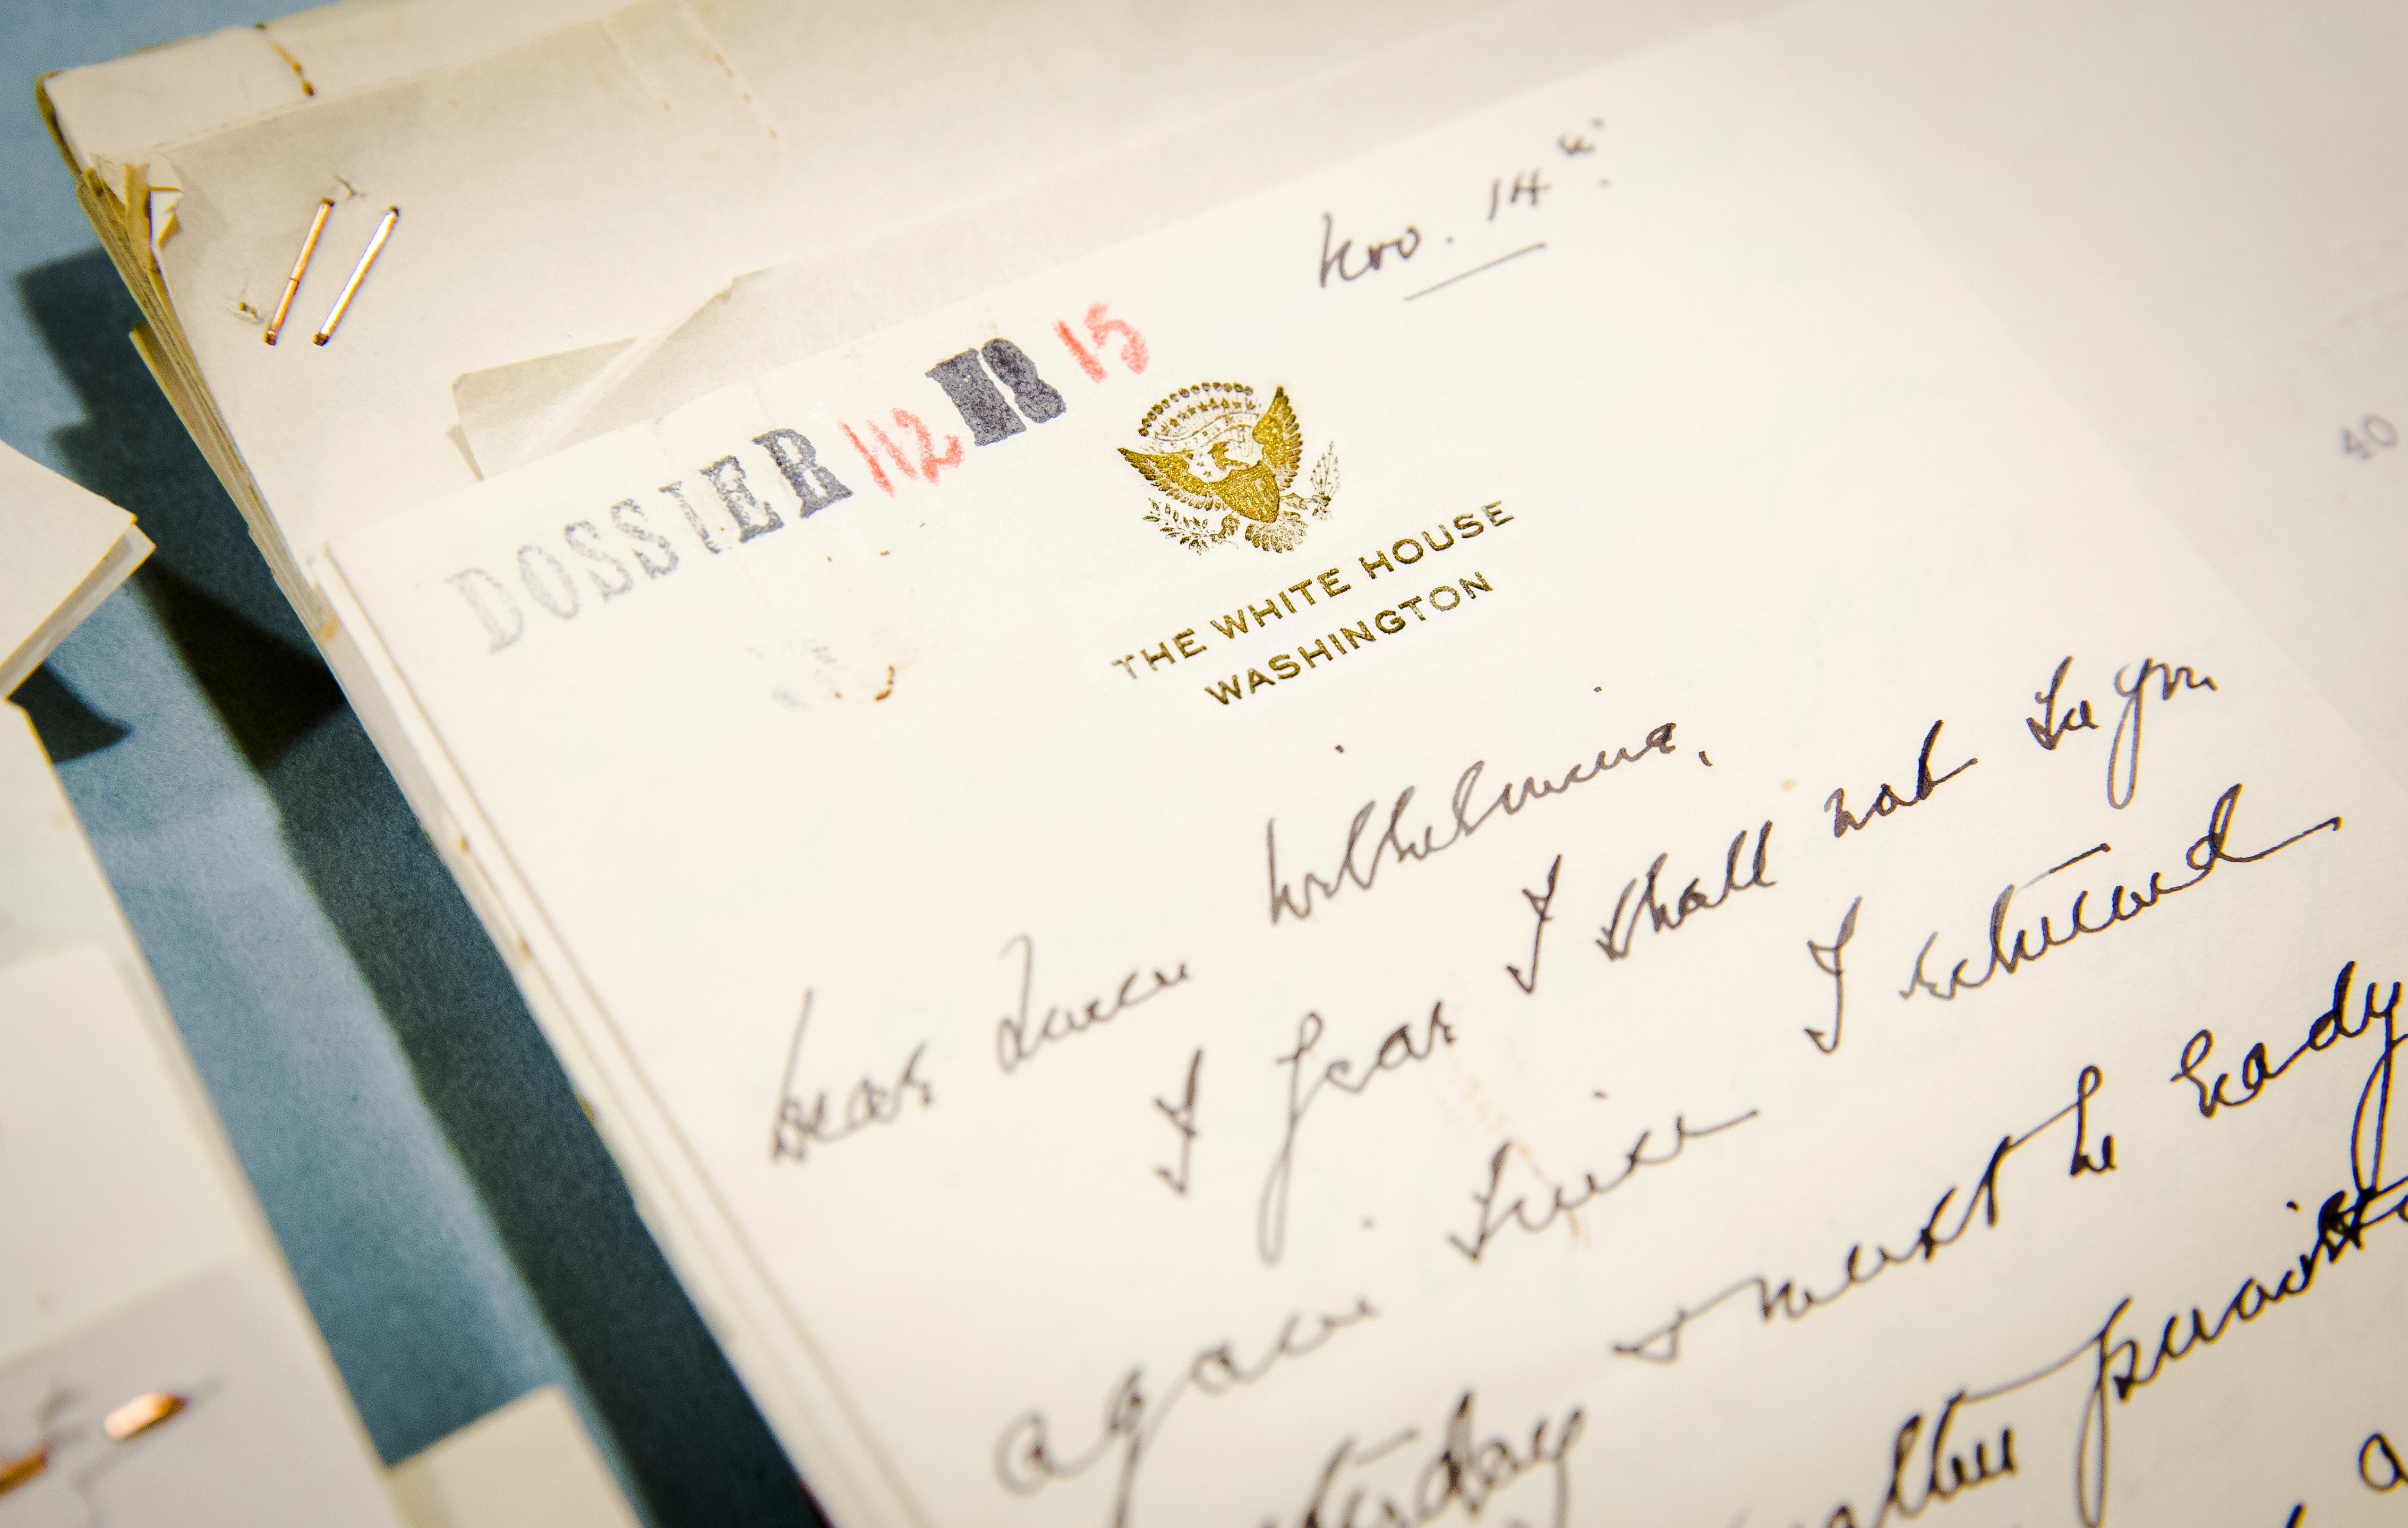 Nov. 14th.
DOSSIER 112 15
THE WHITE HOUSE
WASHINGTON
Dear Queen Wilhelmina,
I fear I shall not see you
again since I returned
yesterday & must be ready
after
40